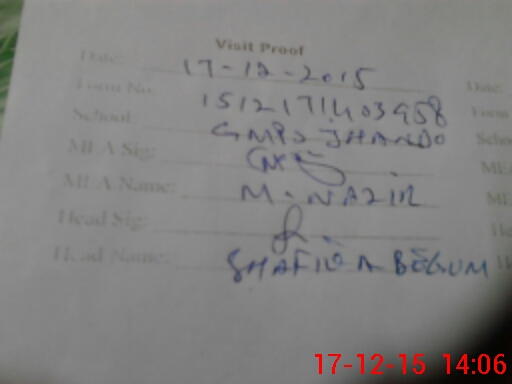 Visit Proof
Date: 17-12-2015
Form No: 1512171403958
School: GMPS JHANDO
MEA Sig:
MEA Name: M. NAZIR
Head Sig:
Head Name: SHAFIQA BEGUM
17-12-15 14:06